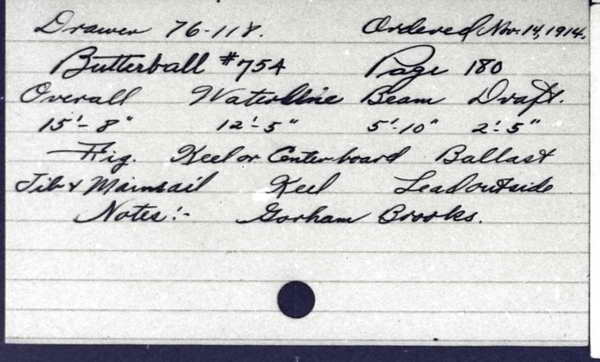 Drawer 76-118. Ordered Nov. 14, 1914.
Butterball #754 Page 180
Overall Waterline Beam Draft.
15'-8" 12'-5" 5'-10" 2'-5"
Rig. Keel or Centerboard Ballast
Jib & Mainsail Keel Lead outside
Notes:- Gorham Brooks.